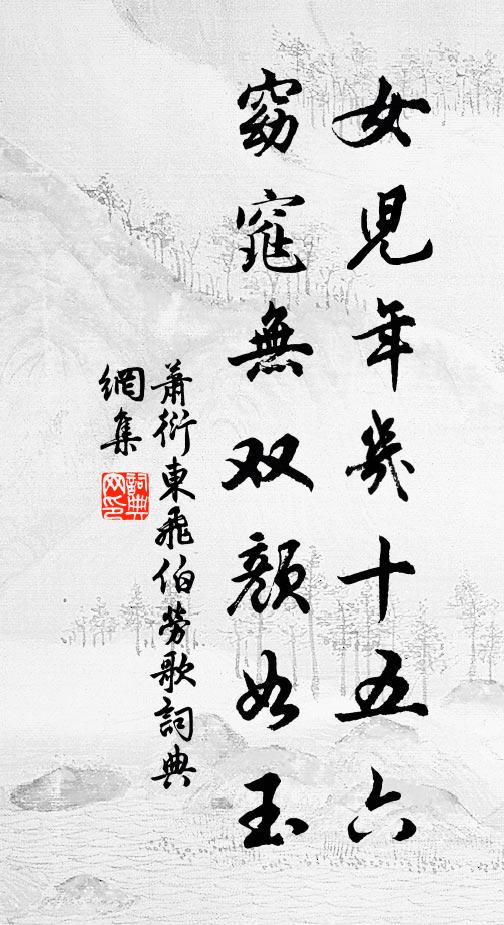 女兒年幾十五六
窈窕無双顏如玉
蕭衍東飛伯勞歌詞典
網集
詞典
网印